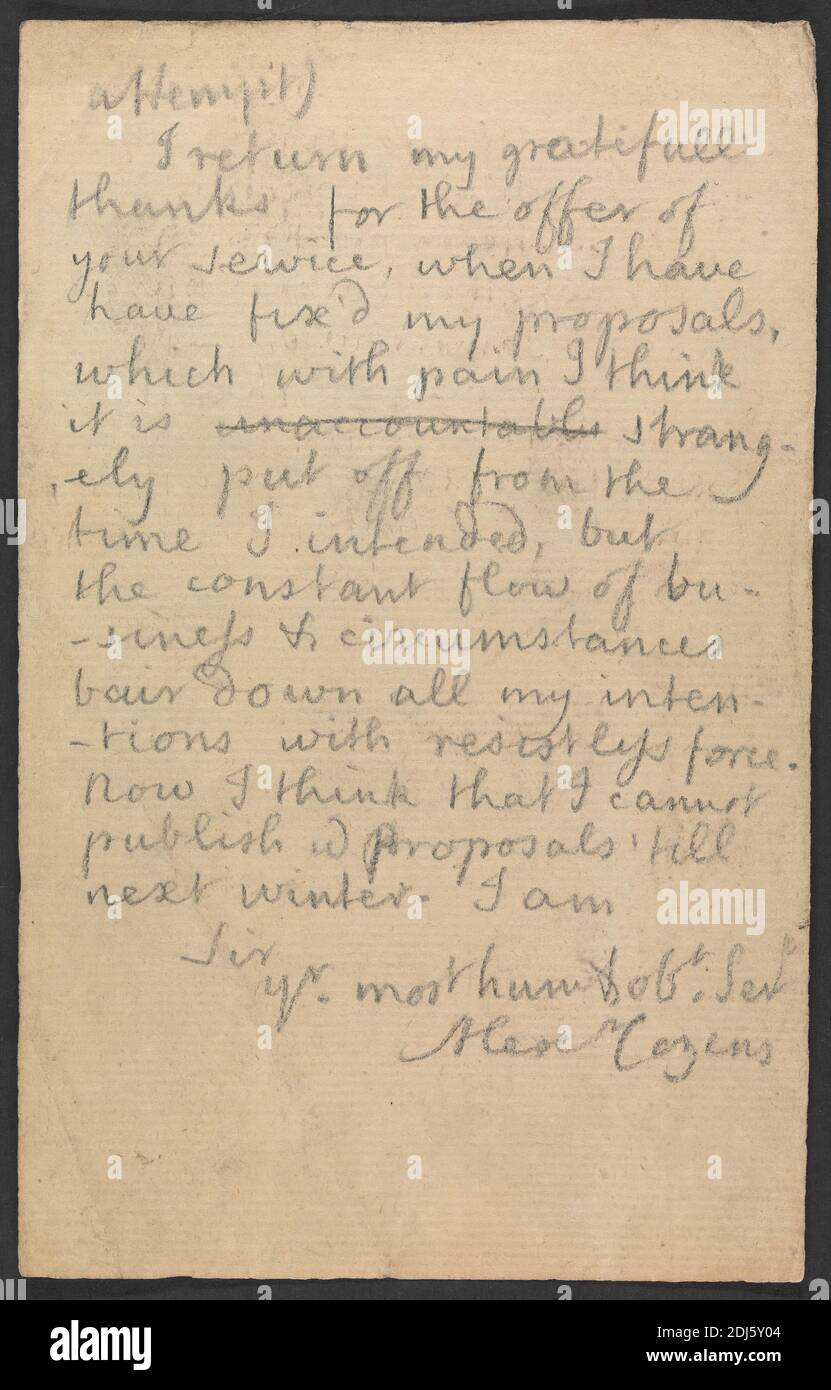 attempt)
I return my gratifull
thanks, for the offer of
your service, when I have
have fix'd my proposals,
which with pain I think
it is unaccountable strang-
-ely put off from the
time I intended, but
the constant flow of bu-
-siness & circumstances
bair down all my inten-
-tions with resistless force.
Now I think that I cannot
publish proposals 'till
next winter. I am
Sir
yr. most hum & obt. Sert
Alexr Cozens
alamy
Image ID: 2DJ5Y04
www.alamy.com